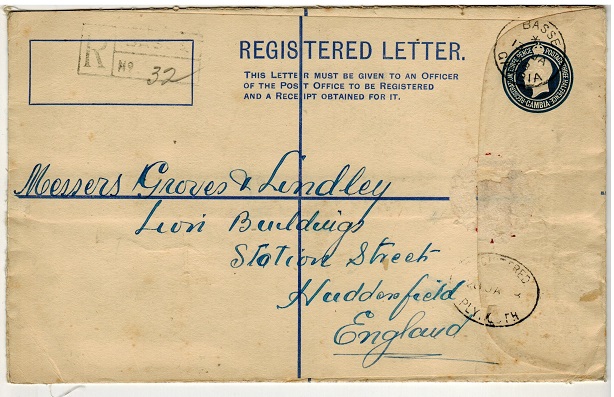 BASSE
R
No 32
REGISTERED LETTER.
THIS LETTER MUST BE GIVEN TO AN OFFICER
OF THE POST OFFICE TO BE REGISTERED
AND A RECEIPT OBTAINED FOR IT.
GAMBIA
Messers Groves & Lindley
Lion Buildings
Station Street
Huddersfield
England
PLYMOUTH